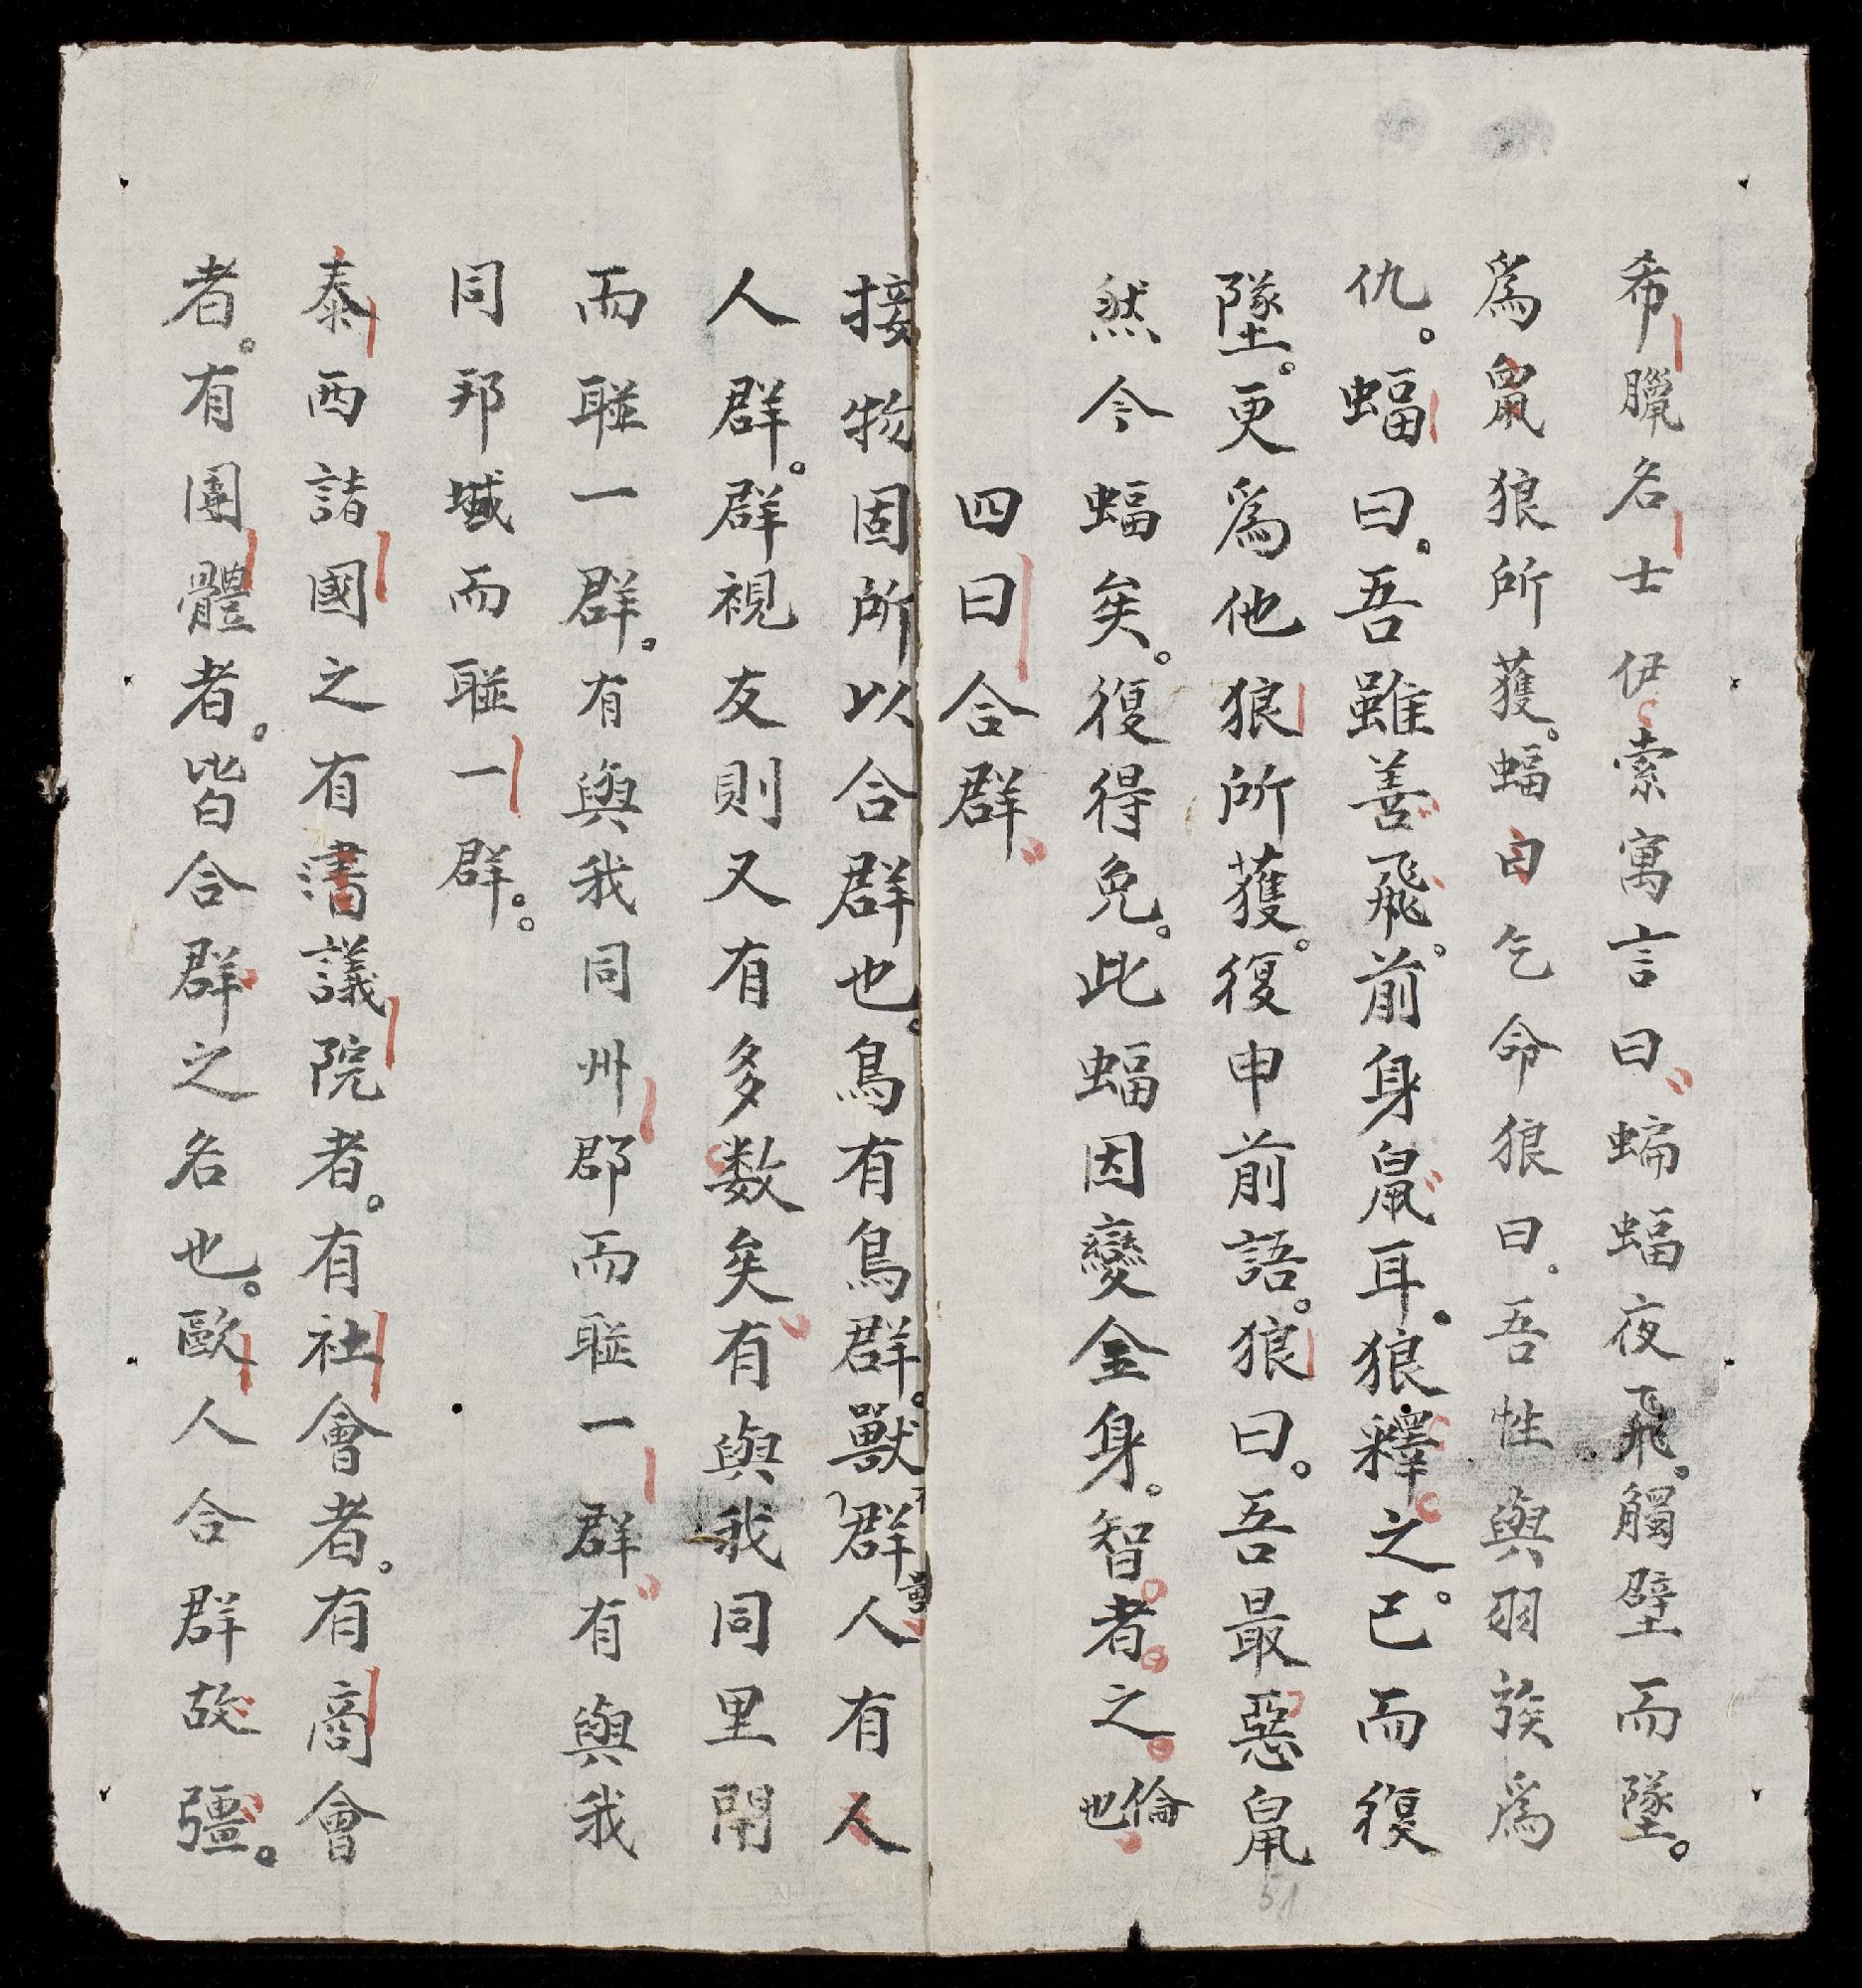 希臘名士伊索寓言曰蝙蝠夜飛。觸壁而墜。
爲鼠狼所獲。蝠自乞命狼曰。吾性與羽族爲
仇。蝠曰。吾雖善飛。前身鼠耳。狼釋之。已而復
墜。更爲他狼所獲。復申前語。狼曰。吾最惡鼠
然今蝠矣。復得免。此蝠因變全身。智者之倫也
四曰合群
接物固所以合群也。鳥有鳥群。獸群人有人
人群。群視友則又有多数矣有與我同里閈
而聯一群。有與我同州郡而聯一群有與我
同邦域而聯一群。
泰西諸國之有書議院者。有社會者。有商會
者。有團體者。皆合群之名也。歐人合群故彊。
51